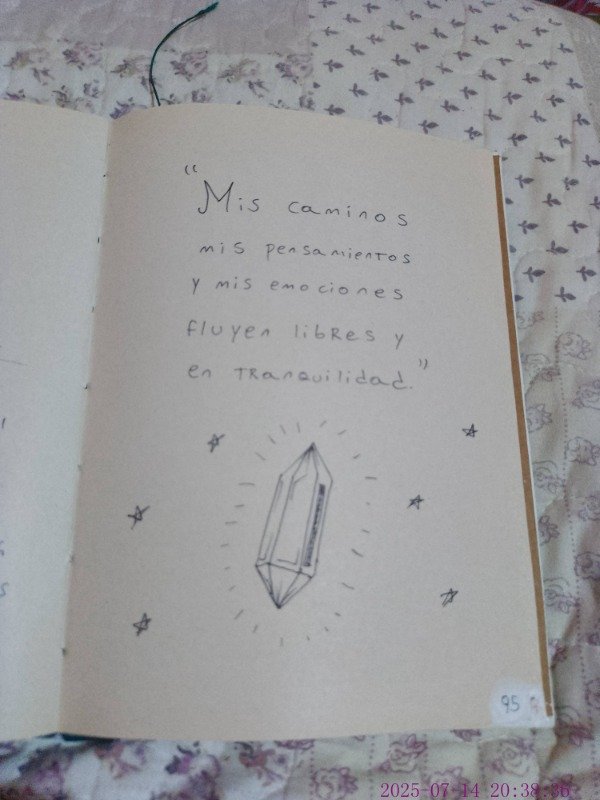 "Mis caminos
mis pensamientos
y mis emociones
fluyen libres y
en tranquilidad."
95
2025-07-14 20:38:36